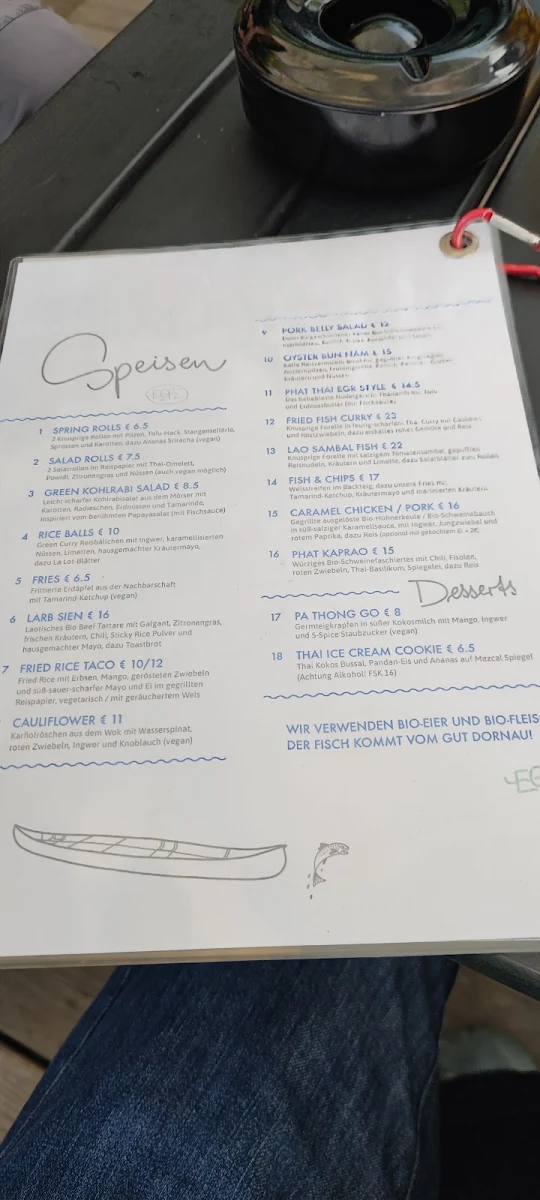 Speisen
1 SPRING ROLLS € 6.5
2 Knusprige Rollen mit Pilzen, Tofu-Hack, Stangensellerie,
Sprossen und Karotten, dazu Ananas Sriracha (vegan)
2 SALAD ROLLS € 7.5
2 Salatrollen im Reispapier mit Thai-Omelett,
Pomelo, Zitronengras und Nüssen (auch vegan möglich)
3 GREEN KOHLRABI SALAD € 8.5
Leicht scharfer Kohlrabisalat aus dem Mörser mit
Karotten, Radieschen, Erdnüssen und Tamarinde,
inspiriert vom berühmten Papayasalat (mit Fischsauce)
4 RICE BALLS € 10
Green Curry Reisbällchen mit Ingwer, karamellisierten
Nüssen, Limetten, hausgemachter Kräutermayo,
dazu La Lot-Blätter
5 FRIES € 6.5
Frittierte Erdäpfel aus der Nachbarschaft
mit Tamarind-Ketchup (vegan)
6 LARB SIEN € 16
Laotisches Bio Beef Tartare mit Galgant, Zitronengras,
frischen Kräutern, Chili, Sticky Rice Pulver und
hausgemachter Mayo, dazu Toastbrot
7 FRIED RICE TACO € 10/12
Fried Rice mit Erbsen, Mango, gerösteten Zwiebeln
und süß-sauer-scharfer Mayo und Ei im gegrillten
Reispapier, vegetarisch / mit geräuchertem Wels
CAULIFLOWER € 11
Karfiolröschen aus dem Wok mit Wasserspinat,
roten Zwiebeln, Ingwer und Knoblauch (vegan)
9 PORK BELLY SALAD € 12
10 OYSTER BUN NAM € 15
Kräutern und Nüssen
11 PHAT THAI EGR STYLE € 14.5
12 FRIED FISH CURRY € 23
Knusprige Forelle in feurig-scharfem Thai Curry mit Cashews
und Röstzwiebeln, dazu eiskaltes rohes Gemüse und Reis
13 LAO SAMBAL FISH € 22
Knusprige Forelle mit salzigem Tomatensambal, gepufften
Reisnudeln, Kräutern und Limette, dazu Salatblätter zum Rollen
14 FISH & CHIPS € 17
Welsstreifen im Backteig, dazu unsere Fries mit
Tamarind-Ketchup, Kräutermayo und marinierten Kräutern
15 CARAMEL CHICKEN / PORK € 16
Gegrillte ausgelöste Bio-Hühnerkeule / Bio-Schweinebauch
in süß-salziger Karamellsauce, mit Ingwer, Jungzwiebel und
rotem Paprika, dazu Reis (optional mit gekochtem Ei + 2€)
16 PHAT KAPRAO € 15
Würziges Bio-Schweinefaschiertes mit Chili, Fisolen,
roten Zwiebeln, Thai-Basilikum, Spiegelei, dazu Reis
Desserts
17 PA THONG GO € 8
Germteigkrapfen in süßer Kokosmilch mit Mango, Ingwer
und 5-Spice Staubzucker (vegan)
18 THAI ICE CREAM COOKIE € 6.5
Thai Kokos Bussal, Pandan-Eis und Ananas auf Mezcal Spiegel
(Achtung Alkohol! FSK 16)
WIR VERWENDEN BIO-EIER UND BIO-FLEIS
DER FISCH KOMMT VOM GUT DORNAU!